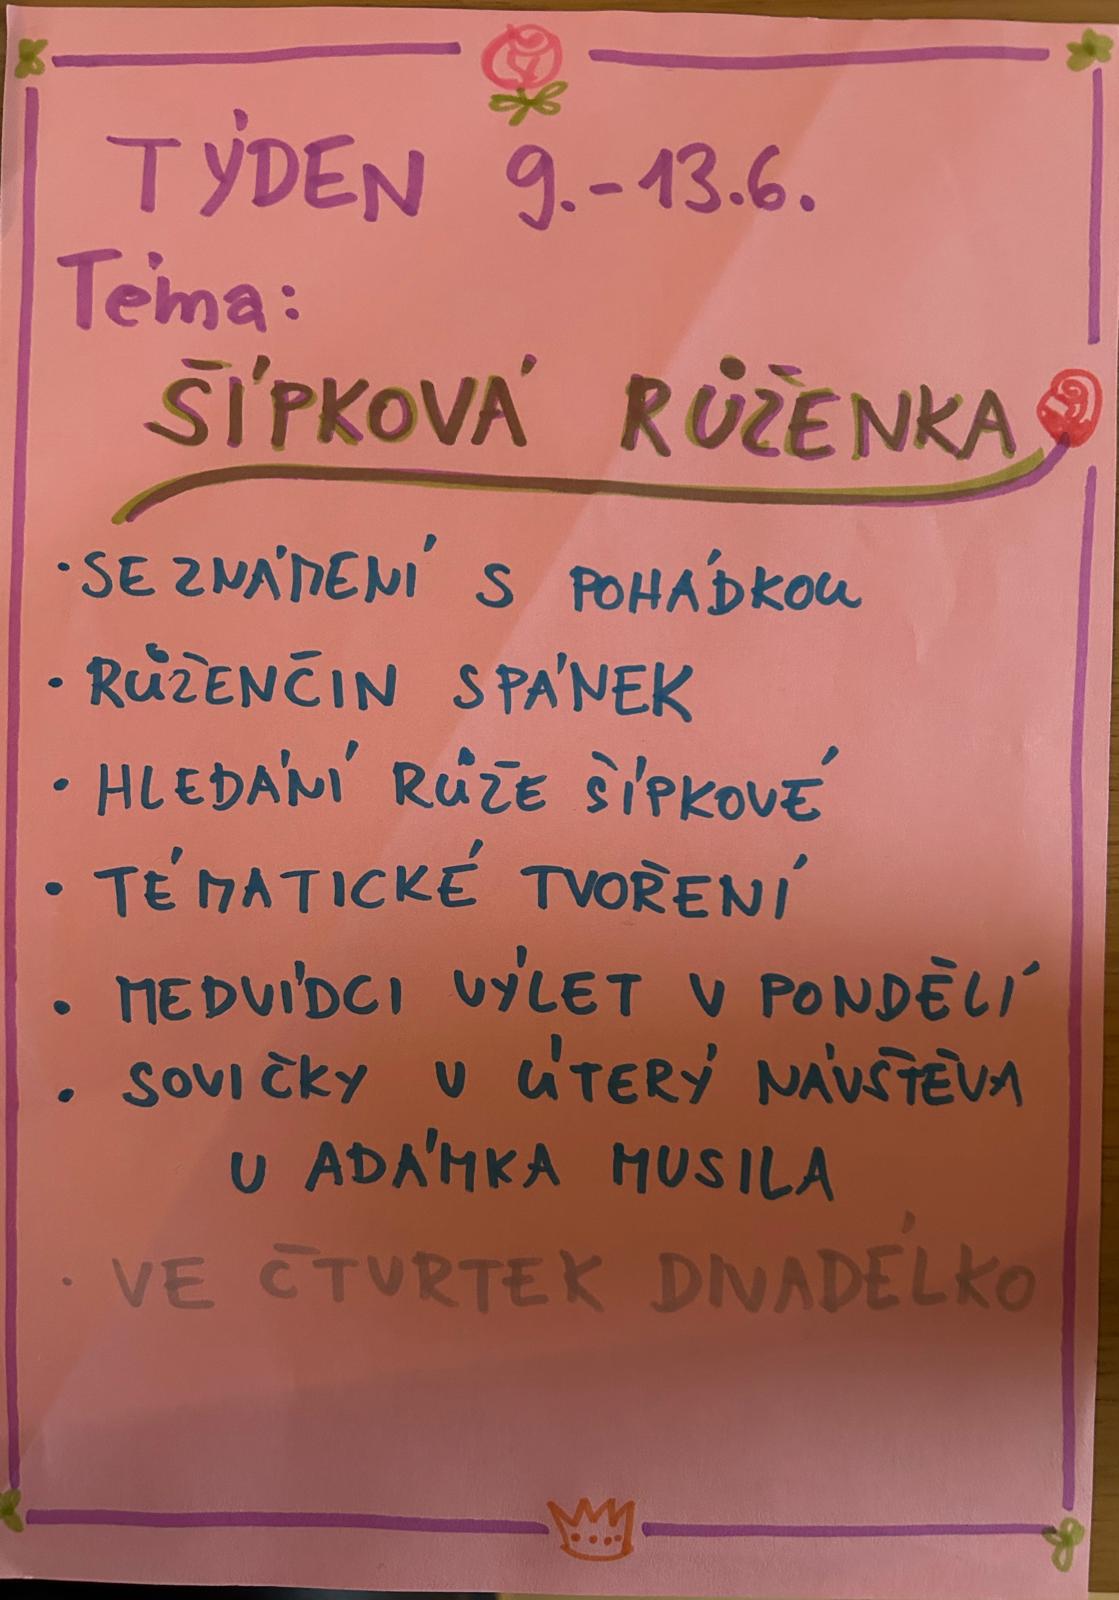 TÝDEN 9.-13.6.
Téma:
ŠÍPKOVÁ RŮŽENKA
• SEZNÁMENÍ S POHÁDKOU
• RŮŽENČIN SPÁNEK
• HLEDÁNÍ RŮŽE ŠÍPKOVÉ
• TÉMATICKÉ TVOŘENÍ
• MEDVÍDCI VÝLET V PONDĚLÍ
• SOVIČKY V ÚTERÝ NÁVŠTĚVA
U ADÁMKA MUSILA
• VE ČTVRTEK DIVADÉLKO